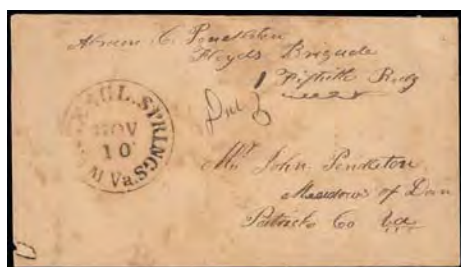 C. Pendleton
Floyds Brigade
Fiftieth Regt
Due
SUL. SPRINGS
NOV
10
Va.
Mr John Pendleton
Meadows of Dan
Patrick Co Va